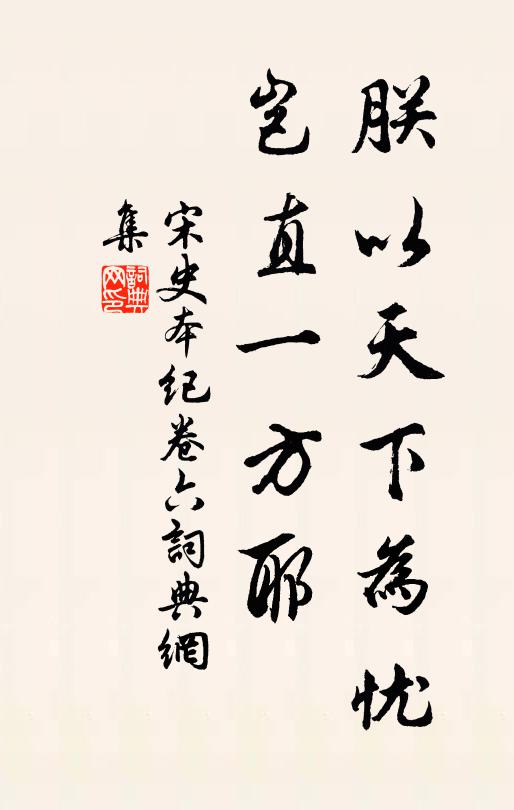 朕以天下為忧
岂直一方耶
宋史本纪卷六詞典網
集
詞典网印